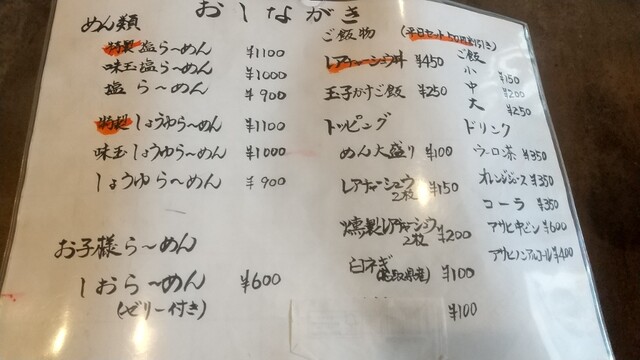 おしながき
めん類
特製塩らーめん ¥1100
味玉塩らーめん ¥1000
塩らーめん ¥900
特製しょうゆらーめん ¥1100
味玉しょうゆらーめん ¥1000
しょうゆらーめん ¥900
お子様らーめん
しおらーめん ¥600
(ゼリー付き)
ご飯物 (平日セット50円引き)
レアチャーシュー丼 ¥450
玉子かけご飯 ¥250
ご飯
小 ¥150
中 ¥200
大 ¥250
トッピング
めん大盛り ¥100
レアチャーシュウ
2枚 ¥150
燻製レアチャーシュウ
2枚 ¥200
白ネギ ¥100
¥100
ドリンク
ウーロン茶 ¥350
オレンジジュース ¥350
コーラ ¥350
アサヒ中ビン ¥600
アサヒノンアルコール ¥400